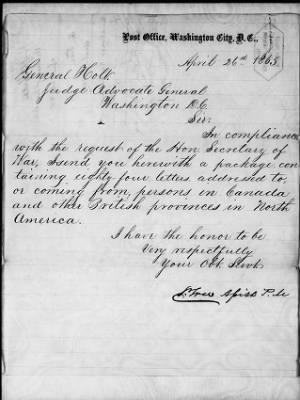 Post Office, Washington City, D.C.,
April 26th 1865
General Holt
Judge Advocate General
Washington D.C.
Sir:
In compliance
with the request of the Hon. Secretary of
War, I send you herewith a package con
taining eighty four letters, addressed to,
or coming from, persons in Canada
and other British provinces in North
America.
I have the honor to be
Very respectfully
Your Obt. Servt.
P.M.